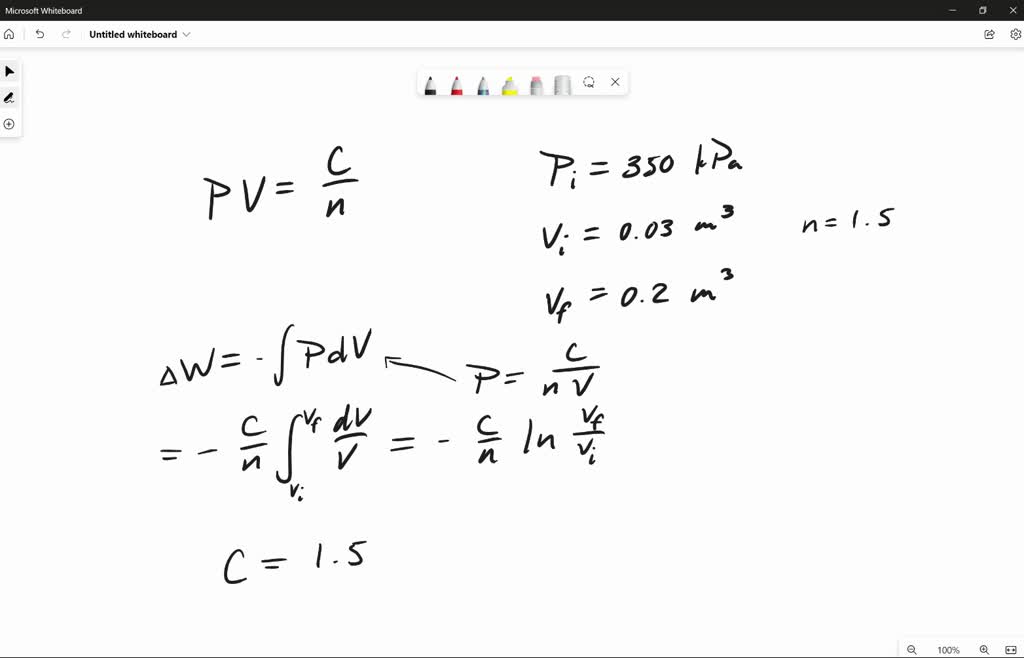 Microsoft Whiteboard
Untitled whiteboard
PV = C/n
Pi = 350 kPa
Vi = 0.03 m³
n = 1.5
Vf = 0.2 m³
ΔW = -∫PdV
P = C/nV
= - C/n ∫Vi^Vf dV/V = - C/n ln Vf/Vi
C = 1.5
100%